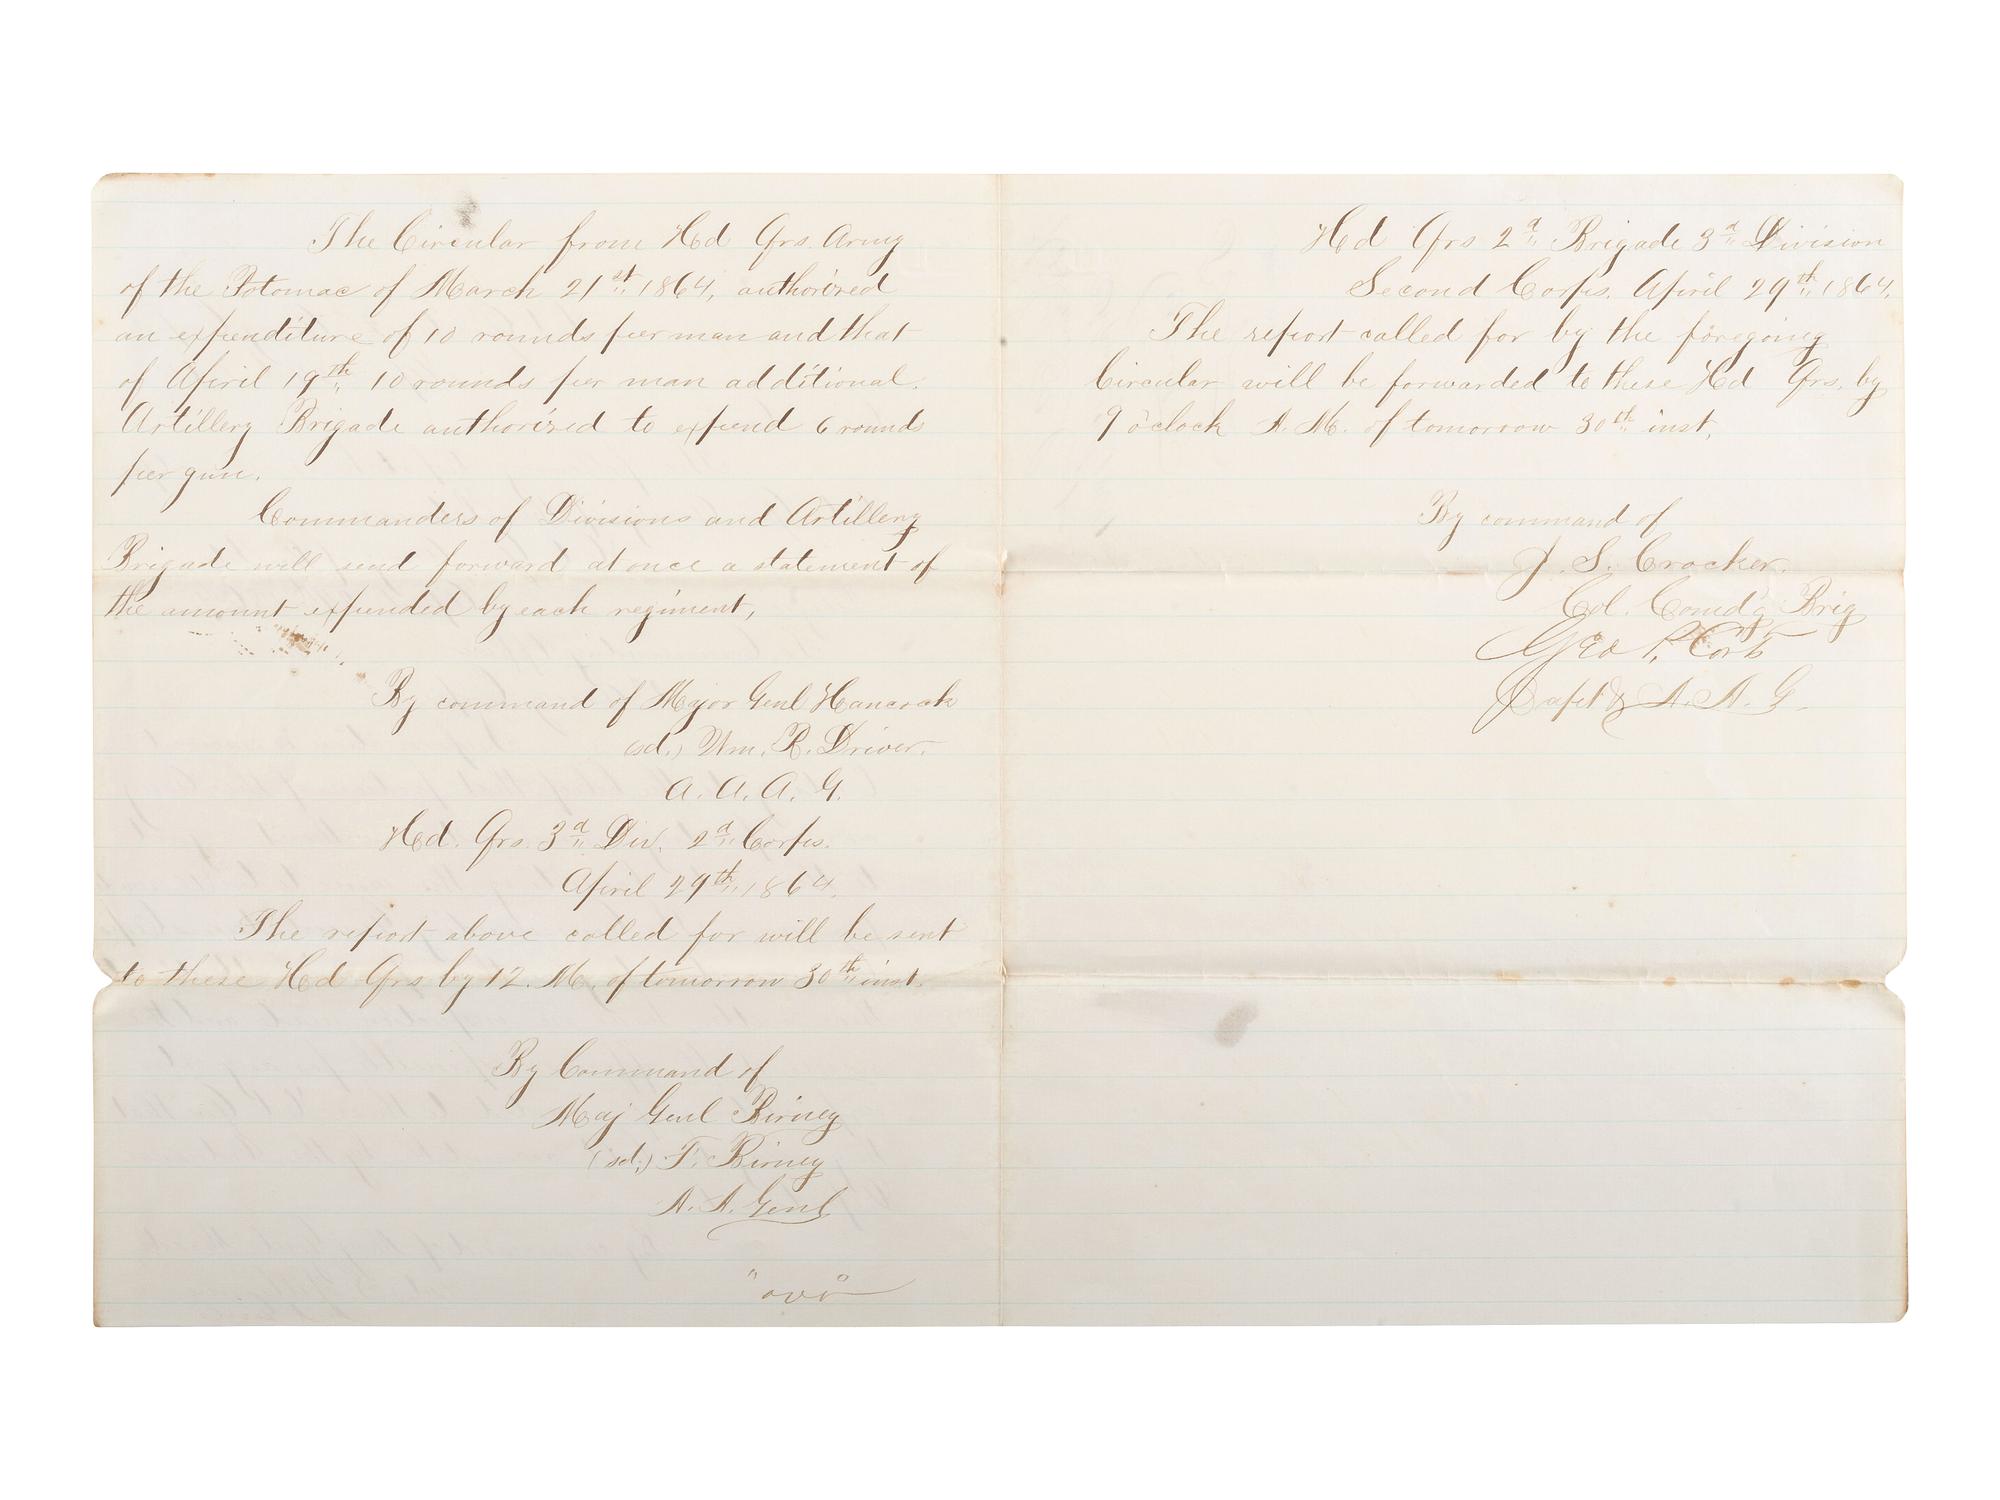 The Circular from Hd Qrs. Army
of the Potomac of March 21st 1864, authorized
an expenditure of 10 rounds per man and that
of April 19th 10 rounds per man additional.
Artillery Brigade authorized to expend 6 round
per gun.
Commanders of Divisions and Artillery
Brigade will send forward at once a statement of
the amount expended by each regiment,
By command of Major Genl Hancock
(sd.) Wm. R. Driver.
A. A. A. G.
Hd. Qrs. 3d Div. 2d Corps.
April 29th, 1864.
The report above called for will be sent
to these Hd Qrs by 12. M. of tomorrow 30th inst.
By Command of
Maj Genl Birney
(sd.) F. Birney
A. A. Genl
"over
Hd Qrs 2d Brigade 3d Division
Second Corps. April 29th 1864.
The report called for by the foregoing
Circular will be forwarded to these Hd Qrs. by
9 o'clock A. M. of tomorrow 30th inst.
By command of
J. S. Crocker.
Col. Comd'g Brig
Geo P. Corts
Capt & A. A. G.